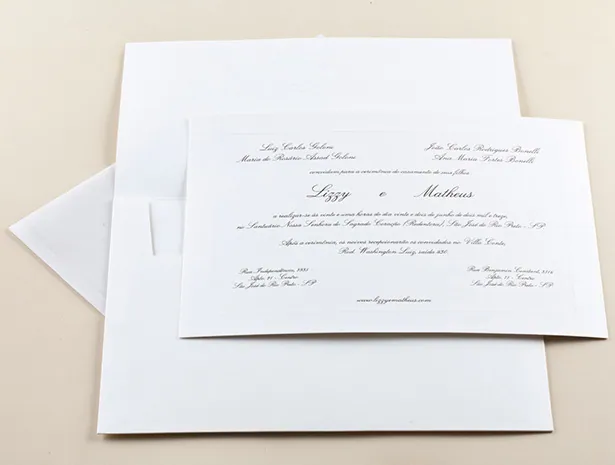 Luiz Carlos Gelons
Maria do Rosário Assad Gelons
João Carlos Rodrigues Bonelli
Ana Maria Portes Bonelli
convidam para a cerimônia de casamento de seus filhos
Lizzy e Matheus
a realizar-se às vinte e uma horas do dia vinte e dois de junho de dois mil e treze,
no Santuário Nossa Senhora do Sagrado Coração (Redentora), São José do Rio Preto - SP.
Após a cerimônia, os noivos recepcionarão os convidados no Villa Conte,
Rod. Washington Luiz, saída
Rua Independência,
Apto. 91 - Centro
São José do Rio Preto - SP
Rua Benjamin Constant,
Apto. - Centro
São José do Rio Preto - SP
www.lizzyematheus.com